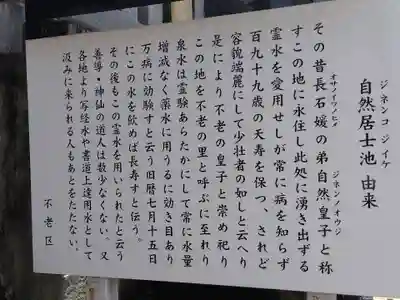 ジネンコ ジイケ
自然居士池 由来
オサノイワノヒメ ジネンノオウジ
その昔長石媛の弟自然皇子と称
すこの地に永住し此処に湧き出ずる
霊水を愛用せしが常に病を知らず
百九十九歳の天寿を保つ、されど
容貌端麗にして少壮者の如しと云へり
是により不老の皇子と崇め祀り
この地を不老の里と呼ぶに至れり
泉水は霊験あらたかにして常に水量
増減なく薬水に用うるに効き目あり
万病に効験すと云う旧暦七月十五日
にこの水を飲めば長寿すと伝う。
その後もこの霊水を用いられたと云う
善導・神仙の道人は数少なくない。又
各地より写経水や書道上達用水として
汲みに来られる人もあとをたたない。
不老区